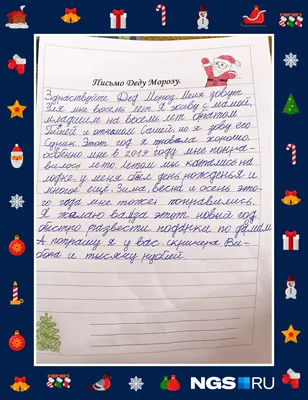 Письмо Деду Морозу.
Здравствуйте Дед Мороз. Меня зовут
мне восемь лет. Я живу с мамой,
младшим на восемь лет братом
и отчимом Сашей, но я зову его
Этот год я провела хорошо.
особенно мне в 2019 году мне понра-
вилось лето. Летом мы катались на
лодке, у меня был день рожденья и
многое ещё. Зима, весна и осень это-
го года мне тоже понравились.
Я желаю вам в этот новый год
быстро развести подарки по домам.
А попрошу я у вас скриера Ви-
бона и тысячу рублей.
NGS.RU